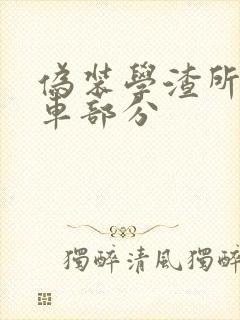 偽裝學渣所
車部分
獨醉清風獨醉